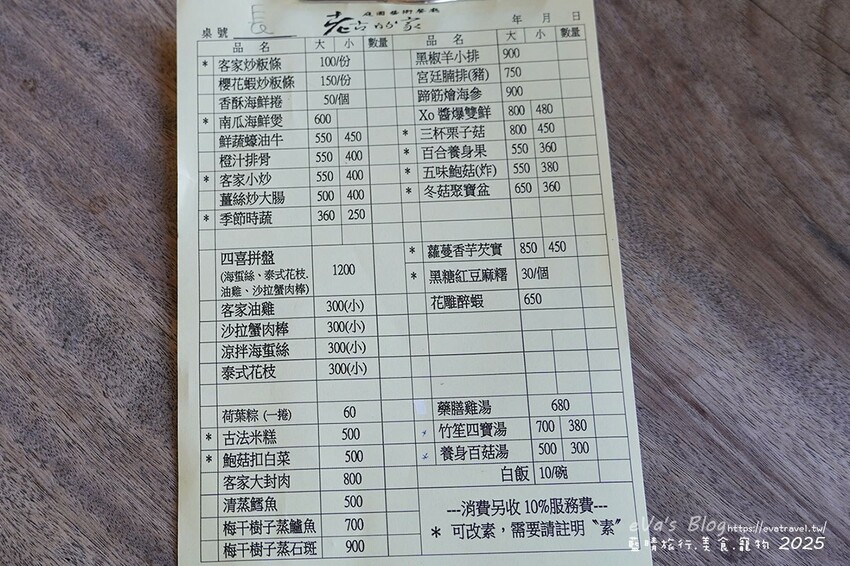 桌號
庭園藝術餐廳
年 月 日
品名 大 小 數量
* 客家炒粄條 100/份
櫻花蝦炒粄條 150/份
香酥海鮮捲 50/個
* 南瓜海鮮煲 600
鮮蔬蠔油牛 550 450
橙汁排骨 550 400
* 客家小炒 550 400
薑絲炒大腸 500 400
* 季節時蔬 360 250
四喜拼盤 1200
(海蜇絲、泰式花枝.
油雞、沙拉蟹肉棒)
客家油雞 300(小)
沙拉蟹肉棒 300(小)
涼拌海蜇絲 300(小)
泰式花枝 300(小)
荷葉粽 (一捲) 60
* 古法米糕 500
* 鮑菇扣白菜 500
客家大封肉 800
清蒸鱈魚 500
梅干樹子蒸鱸魚 700
梅干樹子蒸石斑 900
品名 大 小 數量
黑椒羊小排 900
宮廷腩排(豬) 750
蹄筋燴海參 900
Xo醬爆雙鮮 800 480
* 三杯栗子菇 800 450
* 百合養身果 550 360
* 五味鮑菇(炸) 550 380
* 冬菇聚寶盆 650 360
* 蘿蔓香芋芡實 850 450
* 黑糖紅豆麻糬 30/個
花雕醉蝦 650
藥膳雞湯 680
* 竹笙四寶湯 700 380
* 養身百菇湯 500 300
白飯 10/碗
---消費另收10%服務費---
* 可改素，需要請註明〝素〞
eVa's Blog https://evatravel.tw/
藍晴旅行.美食.寵物 2025